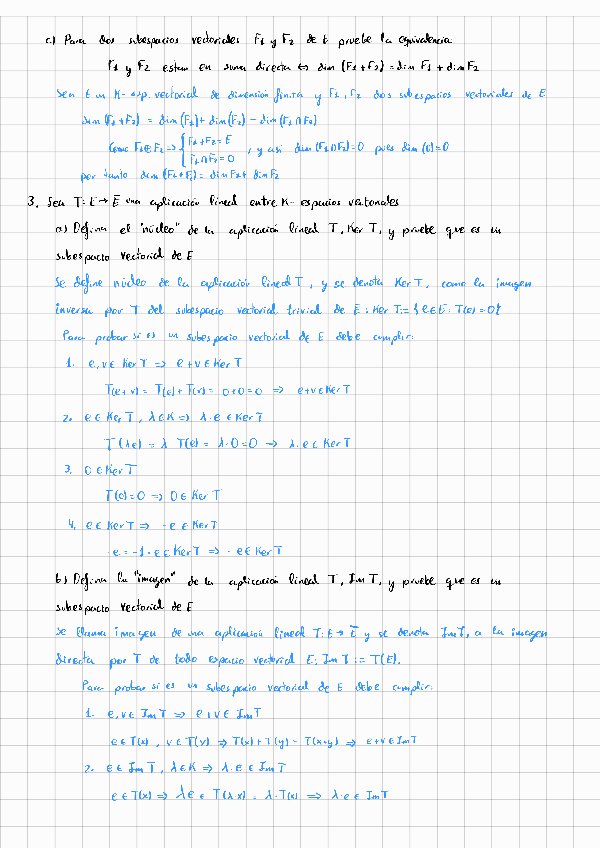 c) Para dos subespacios vectoriales F1 y F2 de E pruebe la equivalencia
F1 y F2 estan en suma directa ⇔ dim (F1 + F2) = dim F1 + dim F2
Sea E un K- esp. vectorial de dimensión finita y F1, F2 dos subespacios vectoriales de E
dim (F1 + F2) = dim (F1) + dim (F2) - dim (F1 ∩ F2)
Como F1 ⊕ F2 => { F1 + F2 = E
F1 ∩ F2 = 0 , y asi dim (F1 ∩ F2) = 0 pues dim (0) = 0
por tanto dim (F1 + F2) = dim F1 + dim F2
3. Sea T: E → Ē una aplicación lineal entre K- espacios vectoriales
a) Defina el "núcleo" de la aplicación lineal T, Ker T, y pruebe que es un
subespacio vectorial de E
Se define núcleo de la aplicación lineal T, y se denota Ker T, como la imagen
inversa por T del subespacio vectorial trivial de Ē: Ker T := { e ∈ E : T(e) = 0 }
Para probar si es un subespacio vectorial de E debe cumplir:
1. e, v ∈ Ker T => e + v ∈ Ker T
T(e + v) = T(e) + T(v) = 0 + 0 = 0 => e + v ∈ Ker T
2. e ∈ Ker T, λ ∈ K => λ · e ∈ Ker T
T(λe) = λ T(e) = λ · 0 = 0 => λ · e ∈ Ker T
3. 0 ∈ Ker T
T(0) = 0 => 0 ∈ Ker T
4. e ∈ Ker T => - e ∈ Ker T
-e = -1 · e ∈ Ker T => - e ∈ Ker T
b) Defina la "imagen" de la aplicación lineal T, Im T, y pruebe que es un
subespacio vectorial de E
Se llama imagen de una aplicación lineal T: E → Ē y se denota Im T, a la imagen
directa por T de todo espacio vectorial E: Im T := T(E).
Para probar si es un subespacio vectorial de E debe cumplir:
1. e, v ∈ Im T => e + v ∈ Im T
e ∈ T(x), v ∈ T(y) => T(x) + T(y) = T(x+y) => e + v ∈ Im T
2. e ∈ Im T, λ ∈ K => λ · e ∈ Im T
e ∈ T(x) => λe ∈ T(λ · x) = λ · T(x) => λ · e ∈ Im T